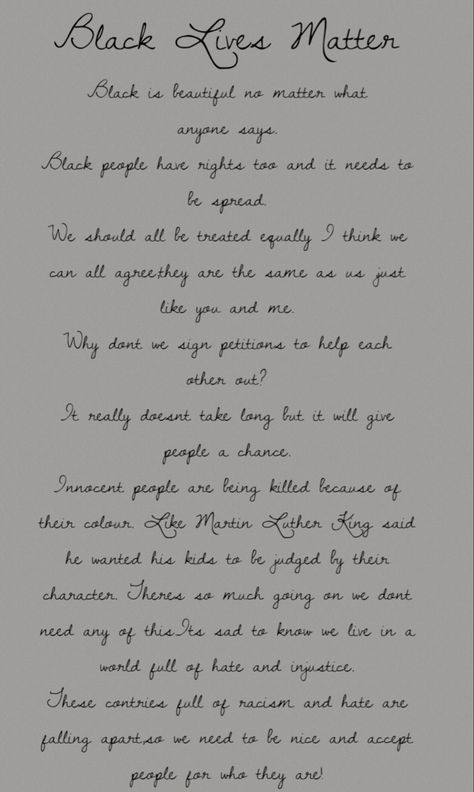 Black Lives Matter
Black is beautiful no matter what
anyone says.
Black people have rights too and it needs to
be spread.
We should all be treated equally I think we
can all agree,they are the same as us just
like you and me.
Why dont we sign petitions to help each
other out?
It really doesnt take long but it will give
people a chance.
Innocent people are being killed because of
their colour. Like Martin Luther King said
he wanted his kids to be judged by their
character. Theres so much going on we dont
need any of this.Its sad to know we live in a
world full of hate and injustice.
These contries full of racism and hate are
falling apart,so we need to be nice and accept
people for who they are!